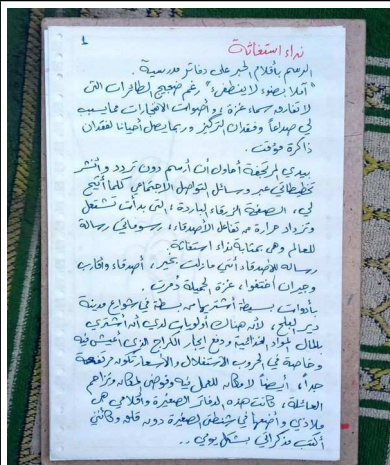 ١
نداء استغاثة
الرسم بأقلام الحبر على دفاتر مدرسية.
"أملاً بضوء لا ينطفئ" رغم ضجيج الطائرات التي
لا تفارق سماء غزة، وأصوات الانفجارات مما يسبب
لي صداعاً وفقدان لتركيز وربما يصل أحياناً لفقدان
ذاكرة مؤقت.
بيدي المرتجفة أحاول أن أرسم دون تردد وأنشر
تخطيطاتي عبر وسائل التواصل الاجتماعي كلما أتيح
لي، الصفحة الزرقاء الباردة، التي بدأت تشتعل
وتزداد حرارة من تفاعل الأصدقاء، رسوماتي رسالة
للعالم وهي بمثابة نداء استغاثة.
رسالة للأصدقاء أنني مازلت بخير، أصدقاء وأقارب
وجيران اختفوا، غزة الجميلة دُمرت.
بأدوات بسيطة أشتريها من بسطة في شوارع مدينة
دير البلح، لأنه هناك أولويات لدي أن أشتري
بالمال المواد الغذائية ودفع إيجار الكراج الذي أعيش فيه
وخاصة في الحروب الاستغلال والأسعار تكون مرتفعة
جداً، أيضاً لا مكان للعمل فيه وفوضى المكان وتزاحم
العائلة، كانت هذه الدفاتر الصغيرة وأقلامي هي
ملاذي وأضعها في شنطتي الصغيرة دون قلق وكأنني
أكتب مذكراتي بشكل يومي..